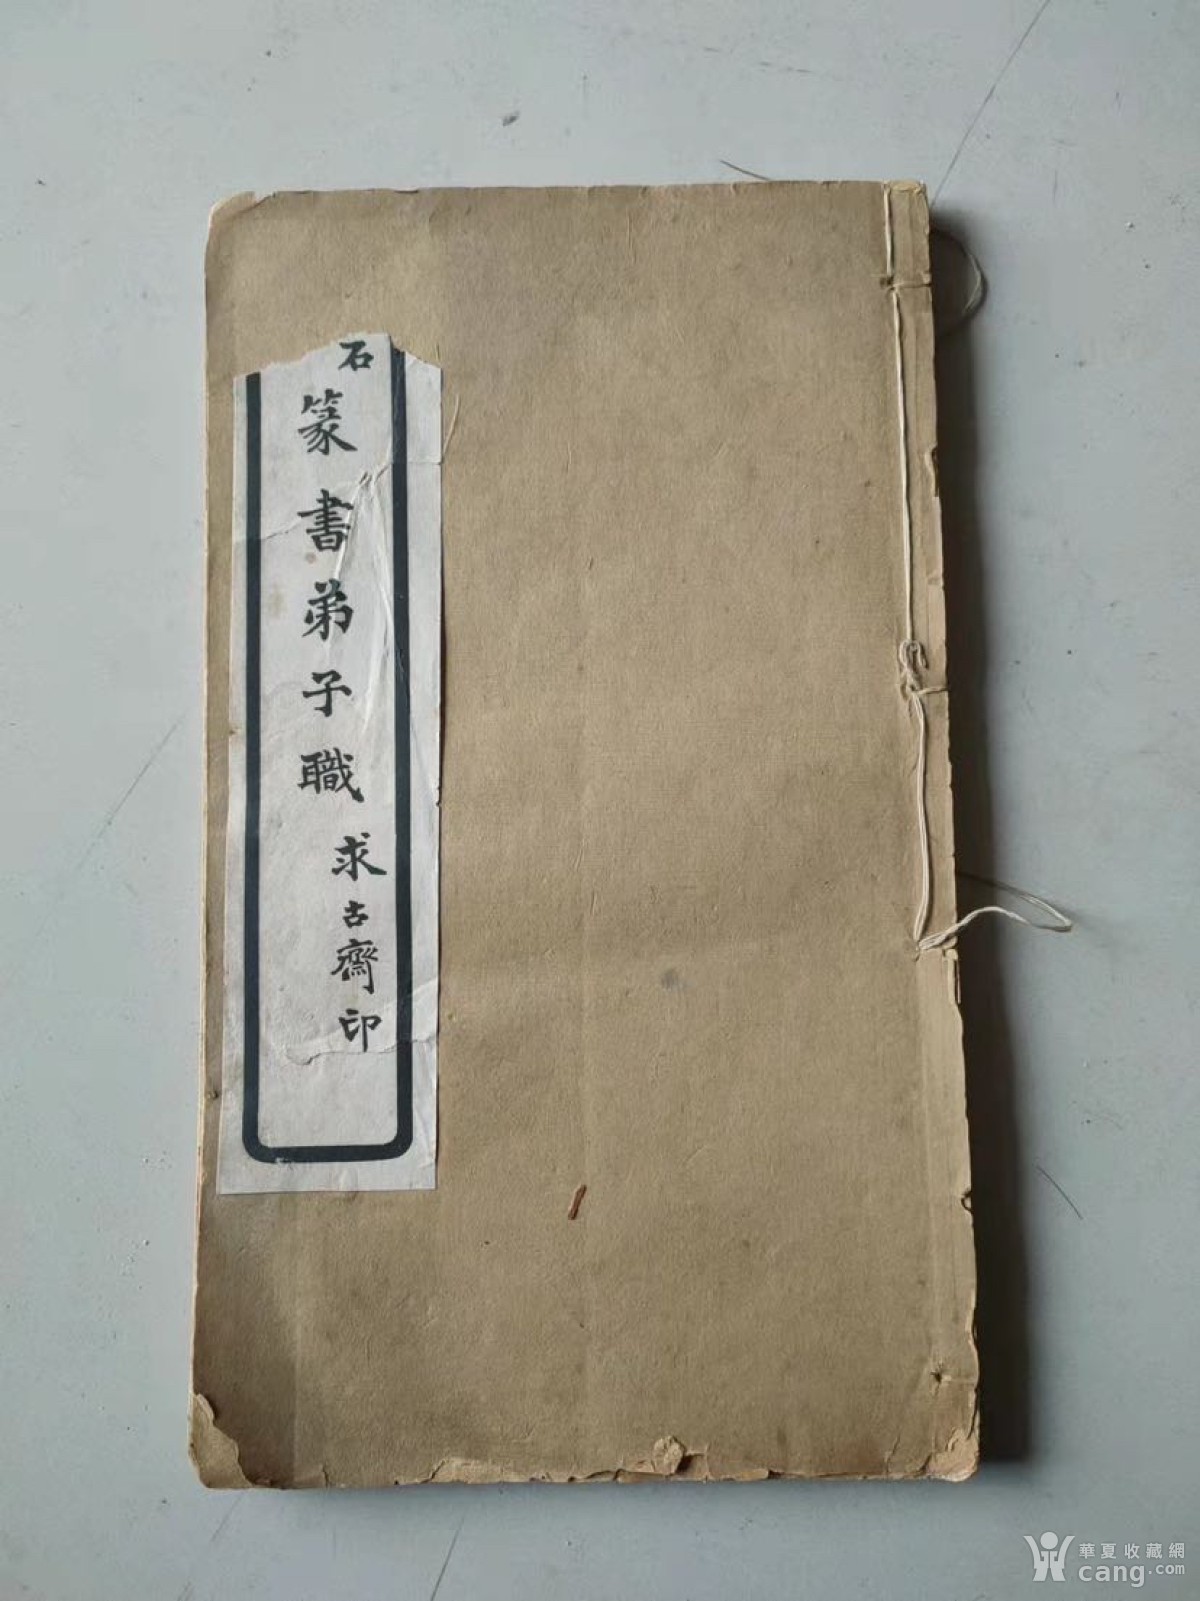 石
篆書弟子職
求古齋印
華夏收藏網
cang.com